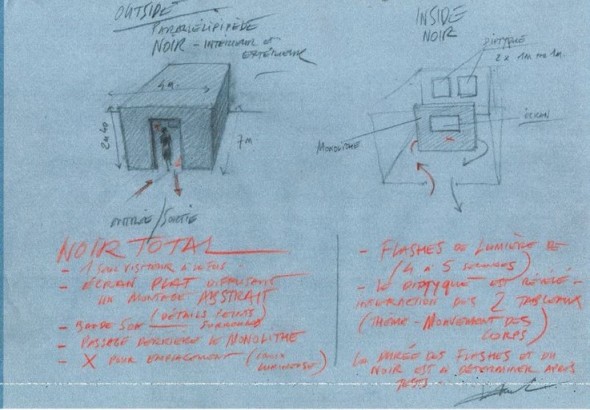 OUTSIDE
PARALLÉLÉPIPÈDE
NOIR - INTÉRIEUR ET
EXTÉRIEUR
4m
2m40
7m
ENTRÉE / SORTIE
INSIDE
NOIR
DIPTYQUE
2 x 1m
ÉCRAN
MONOLITHE
NOIR TOTAL
- 1 SEUL VISITEUR À
- ÉCRAN PLAT DIFFUSANT
UN MONTAGE ABSTRAIT
(DÉTAILS PEINTS)
- BANDE SON
- PASSAGE DERRIÈRE LE MONOLITHE
- X POUR EMPLACEMENT (
LUMINEUSE)
- FLASHES DE LUMIÈRE
(4 À 5 SECONDES)
- LE DIPTYQUE EST RÉVÉLÉ -
INTERACTION DES 2 TABLEAUX
(THÈME - MOUVEMENT DES
CORPS)
LA DURÉE DES FLASHES ET DU
NOIR EST À DÉTERMINER APRÈS
TESTS